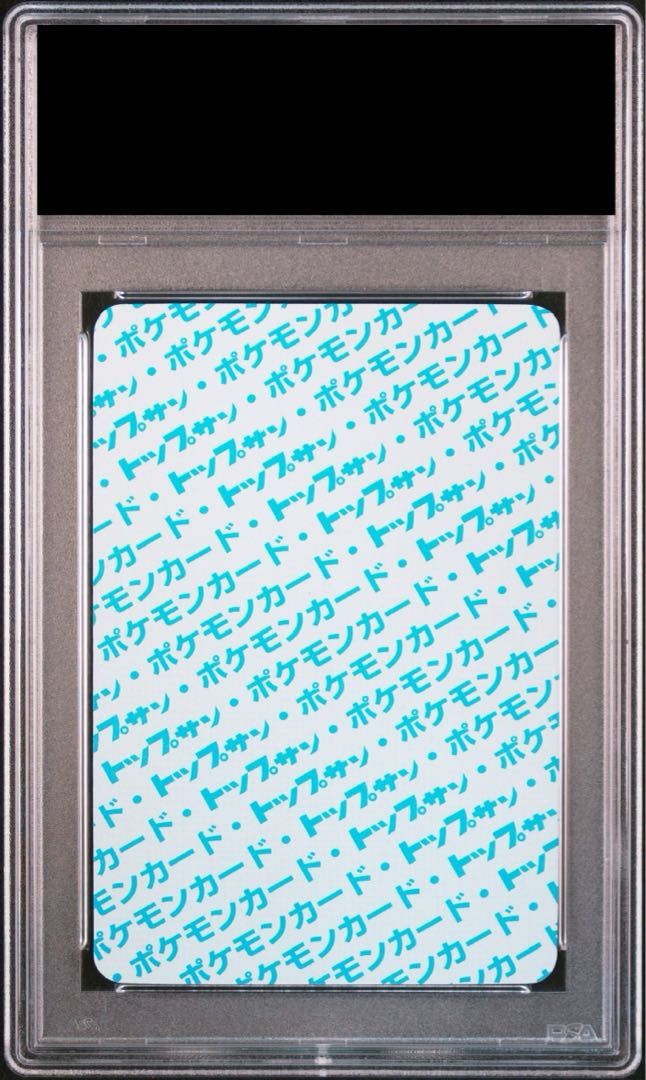 ・ポケモ
サン・ポケモンカ
ップサン・ポケモンカー
トップサン・ポケモンカード
ード・トップサン・ポケモンカー
カード・トップサン・ポケモンカ
モンカード・トップサン・ポケモン
ポケモンカード・トップサン・ポケ
ポケモンカード・トップサン・
サン・ポケモンカード・トップサン
ップサン・ポケモンカード・トップ
トップサン・ポケモンカード・
ド・トップサン・ポケモンカード
カード・トップサン・ポケモンカー
モンカード・トップサン・ポケモン
ケモンカード・トップサン・ポケ
・ポケモンカード・トップサン・
ポケモンカード・トップサン
ケモンカード・トッ
ポケモンカード・
ンカー
PSA